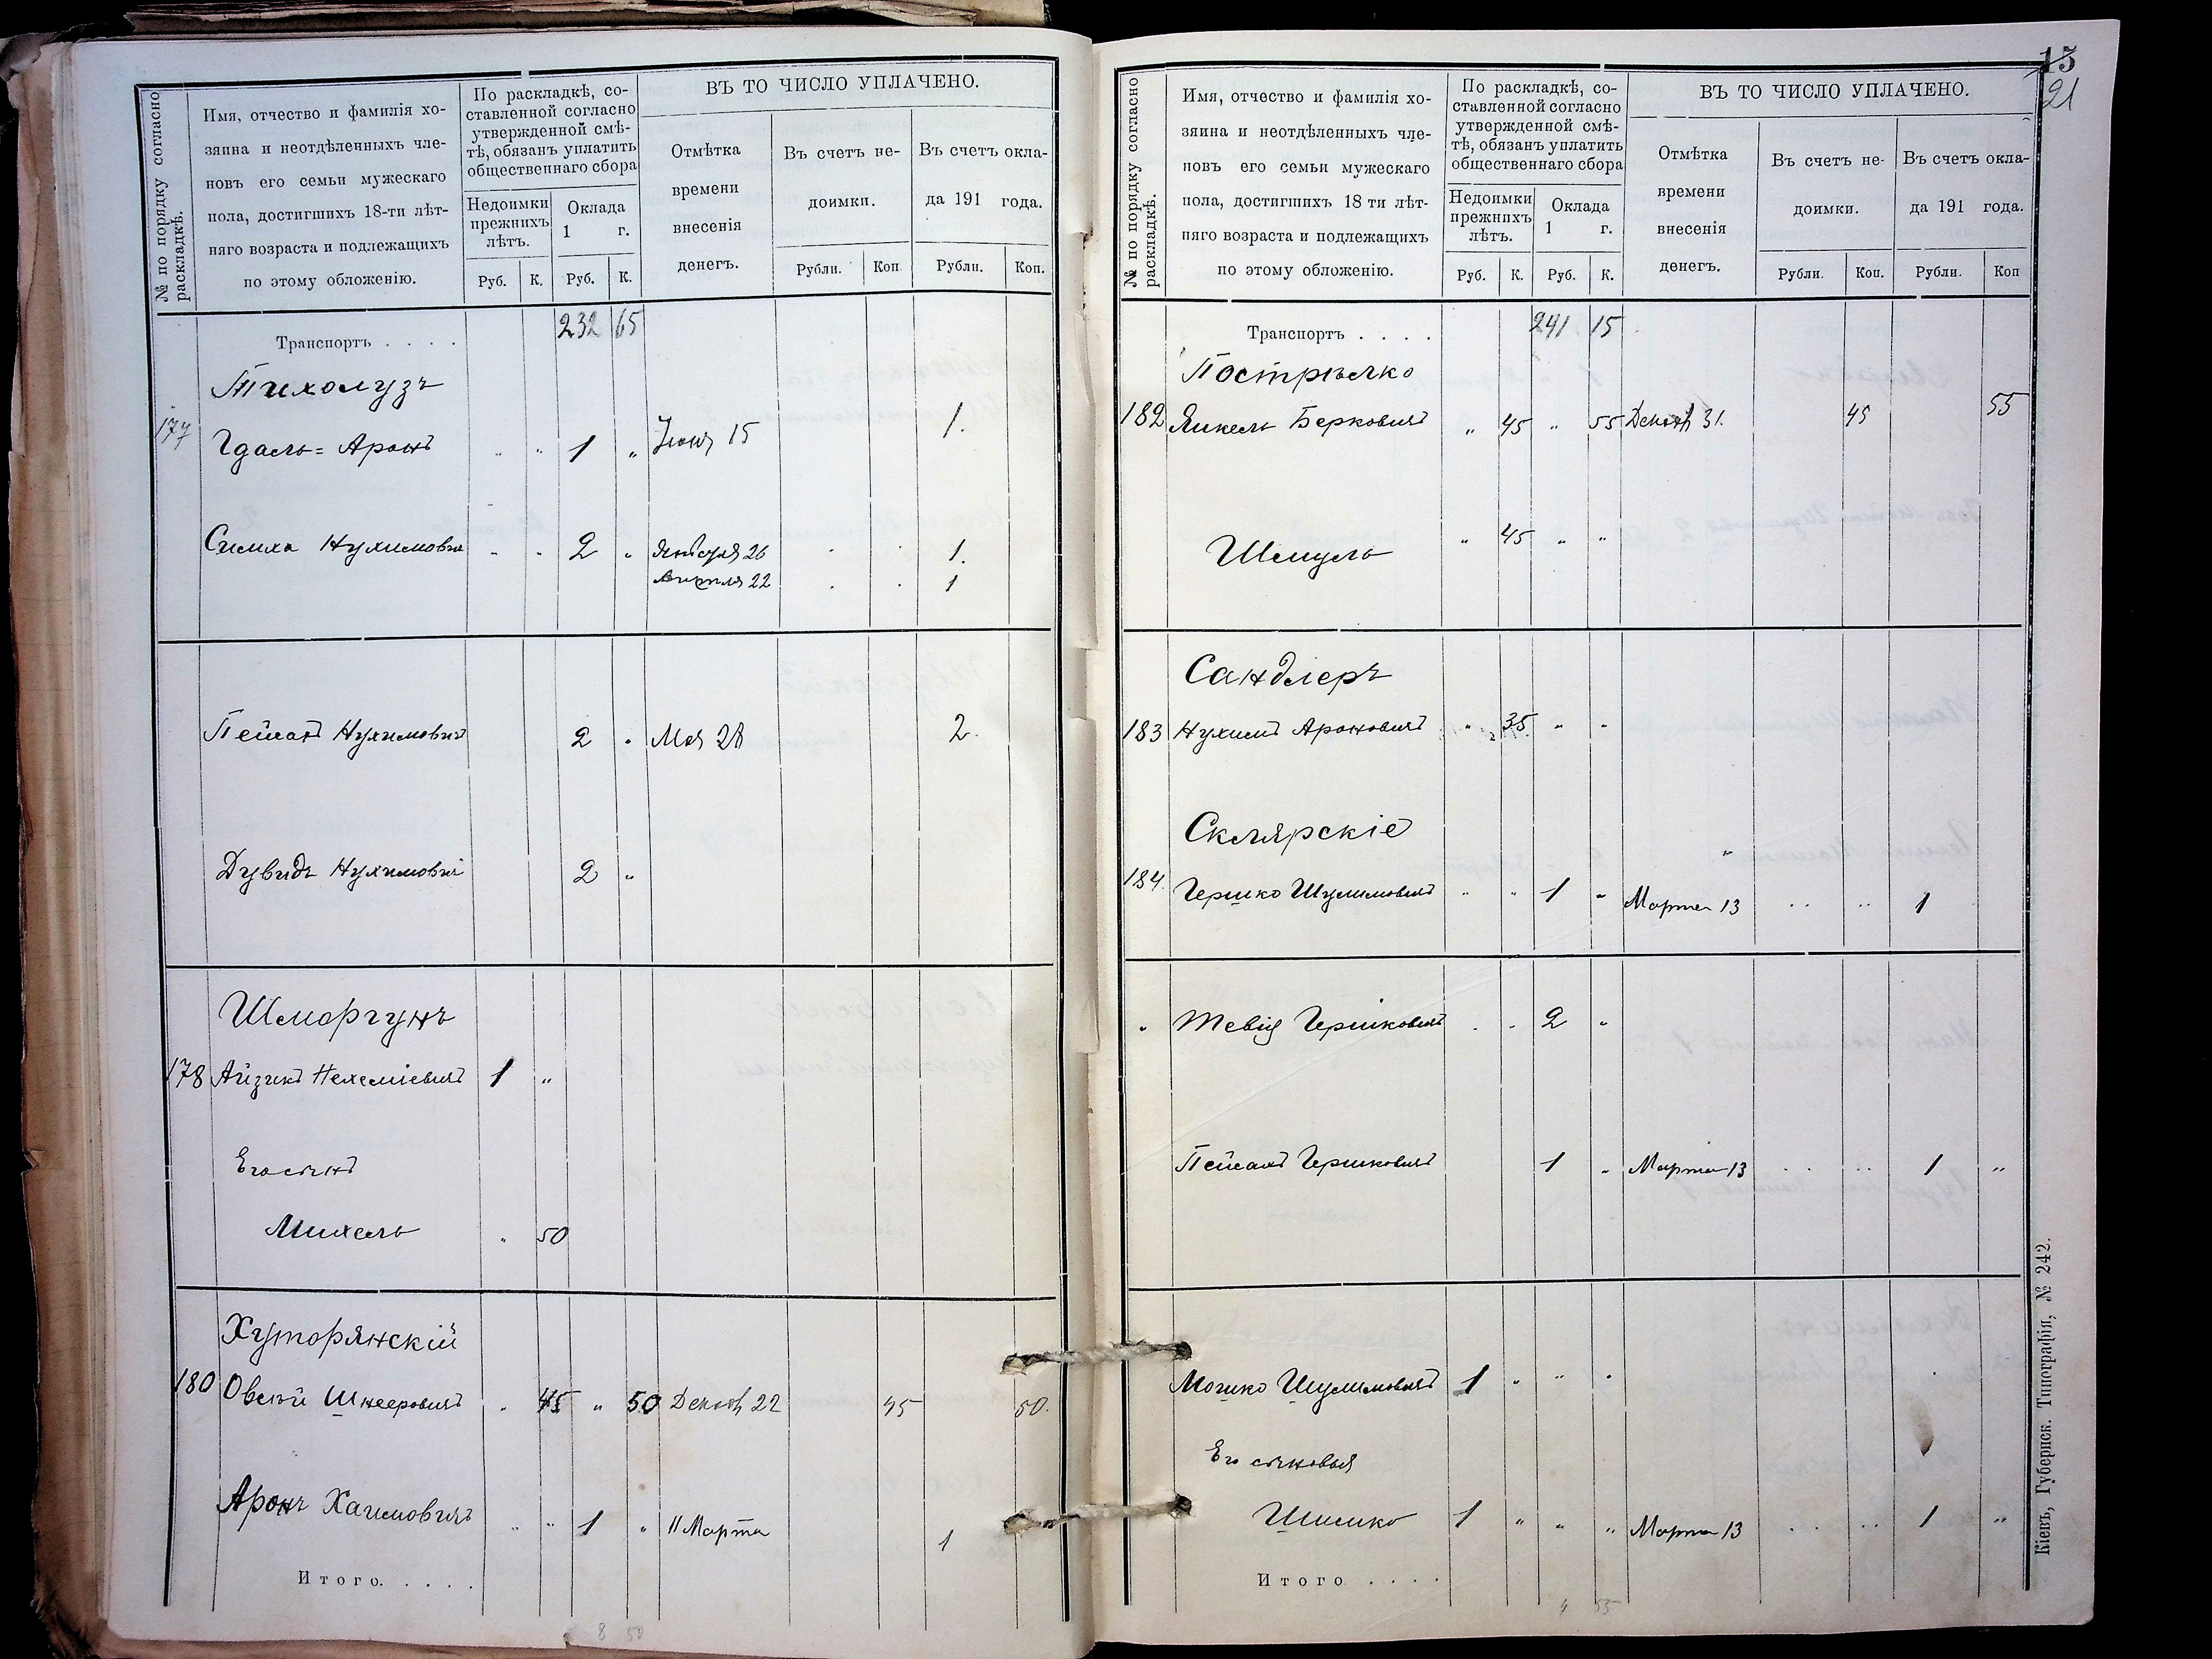 № по порядку согласно
раскладкѣ.
Имя, отчество и фамилія хо-
зяина и неотдѣленныхъ чле-
новъ его семьи мужескаго
пола, достигшихъ 18-ти лѣт-
няго возраста и подлежащихъ
по этому обложенію.
По раскладкѣ, со-
ставленной согласно
утвержденной смѣ-
тѣ, обязанъ уплатить
общественнаго сбора
Недоимки
прежнихъ
лѣтъ.
Оклада
1 г.
Руб. К. Руб. К.
ВЪ ТО ЧИСЛО УПЛАЧЕНО.
Отмѣтка
времени
внесенія
денегъ.
Въ счетъ не-
доимки.
Въ счетъ окла-
да 191 года.
Рубли. Коп Рубли. Коп.
Транспортъ . . . . 232 65
Тихолузъ
177 Гдаль=Аронъ " " 1 " Іюня 15 1.
Симха Нухимовичъ " " 2 " Января 26 " " 1.
Апрѣля 22 " " 1
Пейсахъ Нухимовичъ 2 " Мая 28 2.
Дувидъ Нухимовичъ 2 "
Шморгунъ
178 Айзикъ Нехеміевичъ 1 "
Его сынъ
Михель " 50
Хуторянскій
180 Овсѣй Шнееровичъ " 45 " 50 Декабр 22 45 50.
Аронъ Хаимовичъ " " 1 " 11 Марта 1
Итого. . . . .
8 50
15
21
№ по порядку согласно
раскладкѣ.
Имя, отчество и фамилія хо-
зяина и неотдѣленныхъ чле-
новъ его семьи мужескаго
пола, достигшихъ 18 ти лѣт-
няго возраста и подлежащихъ
по этому обложенію.
По раскладкѣ, со-
ставленной согласно
утвержденной смѣ-
тѣ, обязанъ уплатить
общественнаго сбора
Недоимки
прежнихъ
лѣтъ.
Оклада
1 г.
Руб. К. Руб. К.
ВЪ ТО ЧИСЛО УПЛАЧЕНО.
Отмѣтка
времени
внесенія
денегъ.
Въ счетъ не-
доимки.
Въ счетъ окла-
да 191 года.
Рубли. Коп. Рубли. Коп
Транспортъ . . . . 241 15
Пострѣлко
182 Янкель Берковичъ " 45 " 55 Декабр 31. 45 55
Шмуль " 45 " "
Сандлеръ
183 Нухимъ Ароновичъ " 35 " "
Склярскіе
184. Гершко Шулимовичъ " " 1 " Марта 13 " " 1
" Тевія Гершковичъ " " 2 "
Пейсахъ Гершковичъ 1 " Марта 13 " " 1 "
Мошко Шулимовичъ 1 " " "
Его сыновья
Шимко 1 " " " Марта 13 " " 1 "
Итого . . . .
4 55
Кіевъ, Губернск. Типографія, № 242.